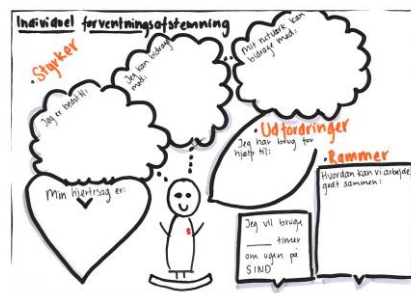 Individuel forventningsafstemning
• Styrker
Jeg er bedst til:
Jeg kan bidrage
med:
Mit netværk kan
bidrage med:
• Udfordringer
Jeg har brug for
hjælp til:
• Rammer
Hvordan kan vi arbejde
godt sammen:
Min hjertesag er:
Jeg vil bruge
____ timer
om ugen på
SIND